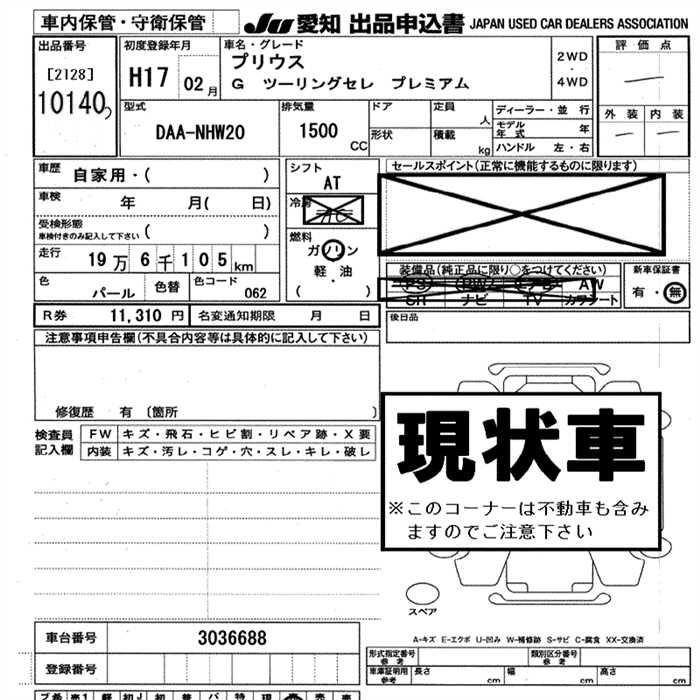 車内保管・守衛保管
JU 愛知 出品申込書 JAPAN USED CAR DEALERS ASSOCIATION
出品番号
[2128]
10140
初度登録年月
H17 02 月
車名・グレード
プリウス
G ツーリングセレ プレミアム
2WD
・
4WD
評価点
外装 内装
型式
DAA-NHW20
排気量
1500
CC
ドア
形状
定員
人
積載
kg
ディーラー・並行
モデル年式 年
ハンドル 左・右
車歴
自家用・( )
車検 年 月( 日)
受検形態
車検付きのみ記入して下さい ( )
走行
19万6千105km
色
パール
色替
色コード
062
シフト
AT
冷房
AC
燃料
ガソリン
軽・油
( )
セールスポイント(正常に機能するものに限ります)
装備品(純正品に限り○をつけてください)
PS PW エアB AW
SR ナビ TV カワシート
新車保証書
有・無
R券 11,310 円
名変通知期限 月 日
後日品
注意事項申告欄(不具合内容等は具体的に記入して下さい)
修復歴 有 〔箇所 〕
検査員
記入欄
FW キズ・飛石・ヒビ割・リペア跡・X要
内装 キズ・汚レ・コゲ・穴・スレ・キレ・破レ
現状車
※このコーナーは不動車も含み
ますのでご注意下さい
スペア
A-キズ E-エクボ U-凹み W-補修跡 S-サビ C-腐食 XX-交換済
車台番号
3036688
登録番号
形式指定番号
参考
類別区分番号
参考
車庫証明用
参考
長さ cm
幅 cm
高さ cm